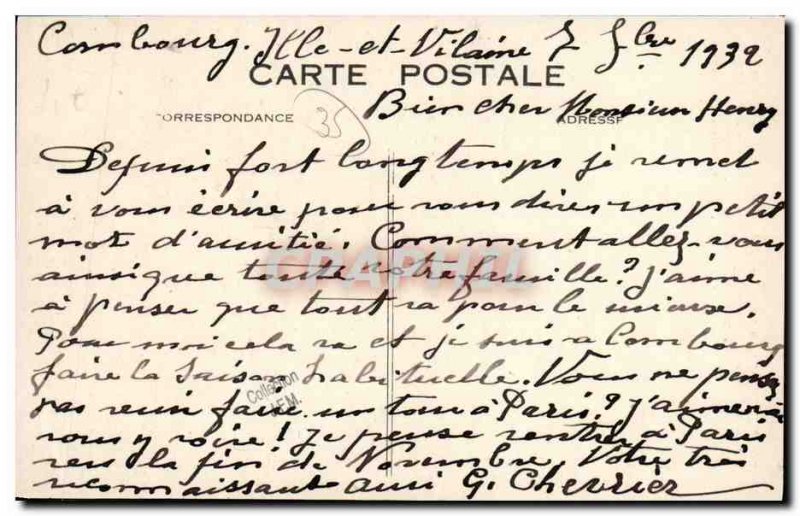 Combourg. Ille-et-Vilaine 7 Sbre 1932
CARTE POSTALE
Bien cher Monsieur Henry
ORRESPONDANCE
35
ADRESSE
Depuis fort longtemps je remet
à vous écrire pour vous dires un petit
mot d'amitié. Comment allez-vous
ainsi que toute votre famille? J'aime
à penser que tout va pour le mieux.
Pour moi cela va et je suis a Combourg
faire la saison habituelle. Vous ne pensez
pas venir faire un tour à Paris? J'aimerais
vous y voire! Je pense rentrer à Paris
vers la fin de Novembre. Votre très
reconnaissant ami G. Chevrier
CPAPHIL
Collection
J.F.M.